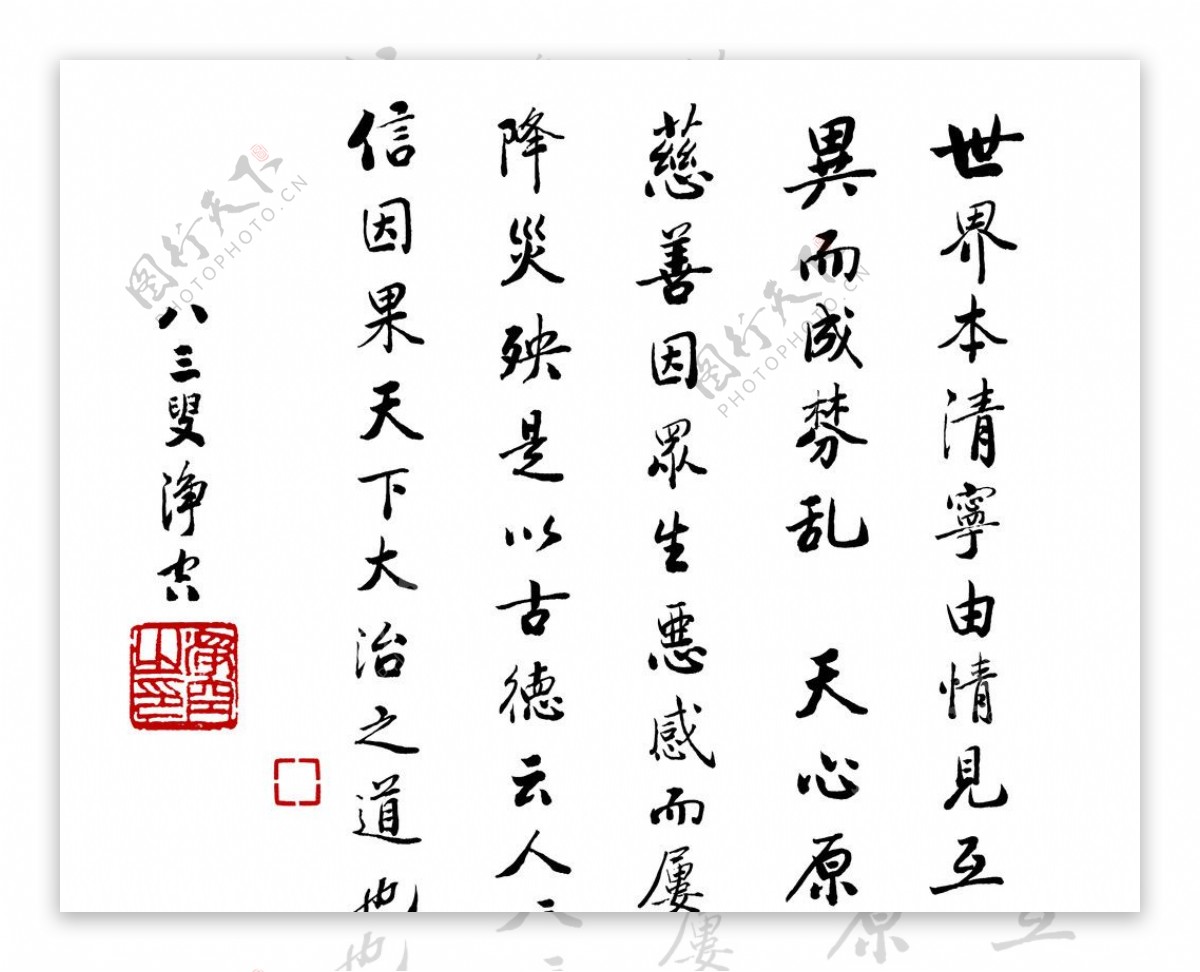 世界本清寧由情見互
異而成棼乱 天心原
慈善因眾生惡感而屢
降災殃是以古德云人
信因果天下大治之道也
八三叟淨空
淨空之印
图行天下 PHOTOPHOTO.CN
图行天下 PHOTOPHOTO.CN